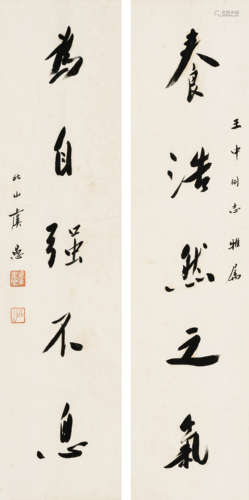 王中同志雅属
养浩然之氣
為自强不息
北山虞愚